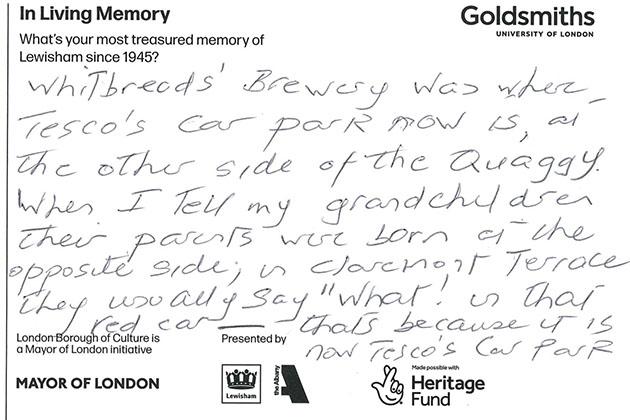 In Living Memory
Goldsmiths
UNIVERSITY OF LONDON
What's your most treasured memory of
Lewisham since 1945?
Whitbreads' Brewery was where
Tesco's car park now is, at
the other side of the Quaggy.
When I Tell my grandchildren
their parents were born at the
opposite side; in Claremont Terrace
they usually say "What! in that
red car — thats because it is
now Tesco's Car Park
London Borough of Culture is
a Mayor of London initiative
Presented by
MAYOR OF LONDON
Lewisham
the Albany
Made possible with
Heritage
Fund